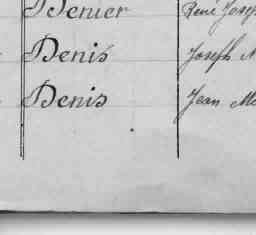 Denier René Josep
Denis Joseph
Denis Jean